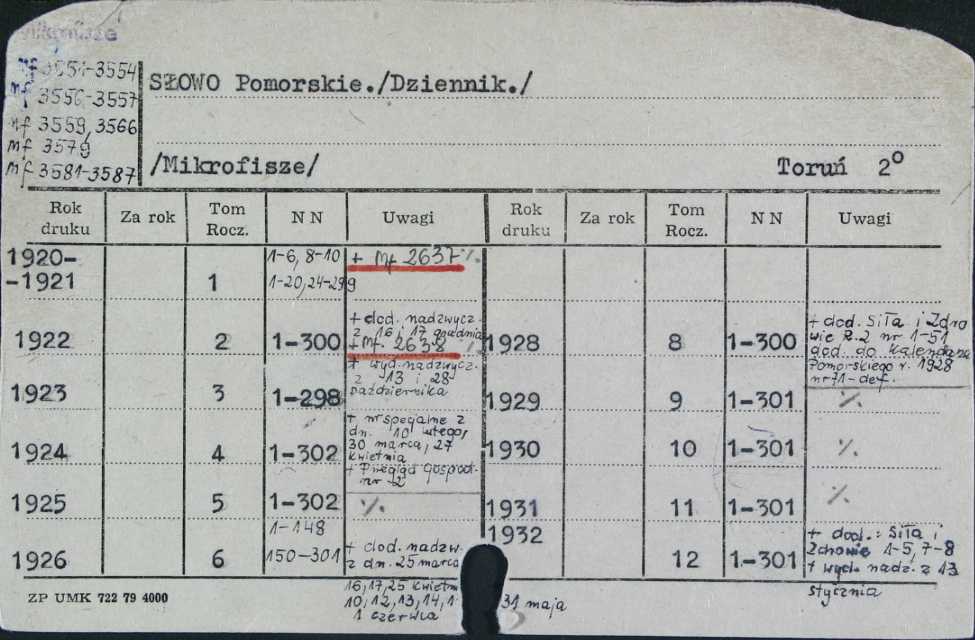 Mikrofisze
mf 3551-3554
mf 3556-3557
mf 3559, 3566
mf 3579
mf 3581-3587
SŁOWO Pomorskie./Dziennik./
/Mikrofisze/ Toruń 2°
Rok druku Za rok Tom Rocz. N N Uwagi Rok druku Za rok Tom Rocz. N N Uwagi
1920- 1-6, 8-10 + mf 2637 %
-1921 1 1-20, 24-299
1922 2 1-300 + dod. nadzwycz.
z 16 i 17 grudnia
+ mf. 2638 %
1923 3 1-298 + wyd. nadzwycz.
z 13 i 28
października
1924 4 1-302 + nr specjalne z
dn. 10 lutego,
30 marca, 27
kwietnia
+ Przegląd Gospod.
nr 2
1925 5 1-302 %
1926 6 1-148
150-301 + dod. nadzw.
z dn. 25 marca
16, 17, 25 kwietn
10, 12, 13, 14, 1 31 maja
1 czerwca
1928 8 1-300 + dod. Siła i Zdro
wie R. 2 nr 1-51
dod. do Kalendarza
Pomorskiego r. 1928
nr 71-def.
1929 9 1-301 %
1930 10 1-301 %
1931 11 1-301 %
1932 12 1-301 + dod.: Siła i
Zdrowie 1-5, 7-8
+ wyd. nadz. z 13
stycznia
ZP UMK 722 79 4000